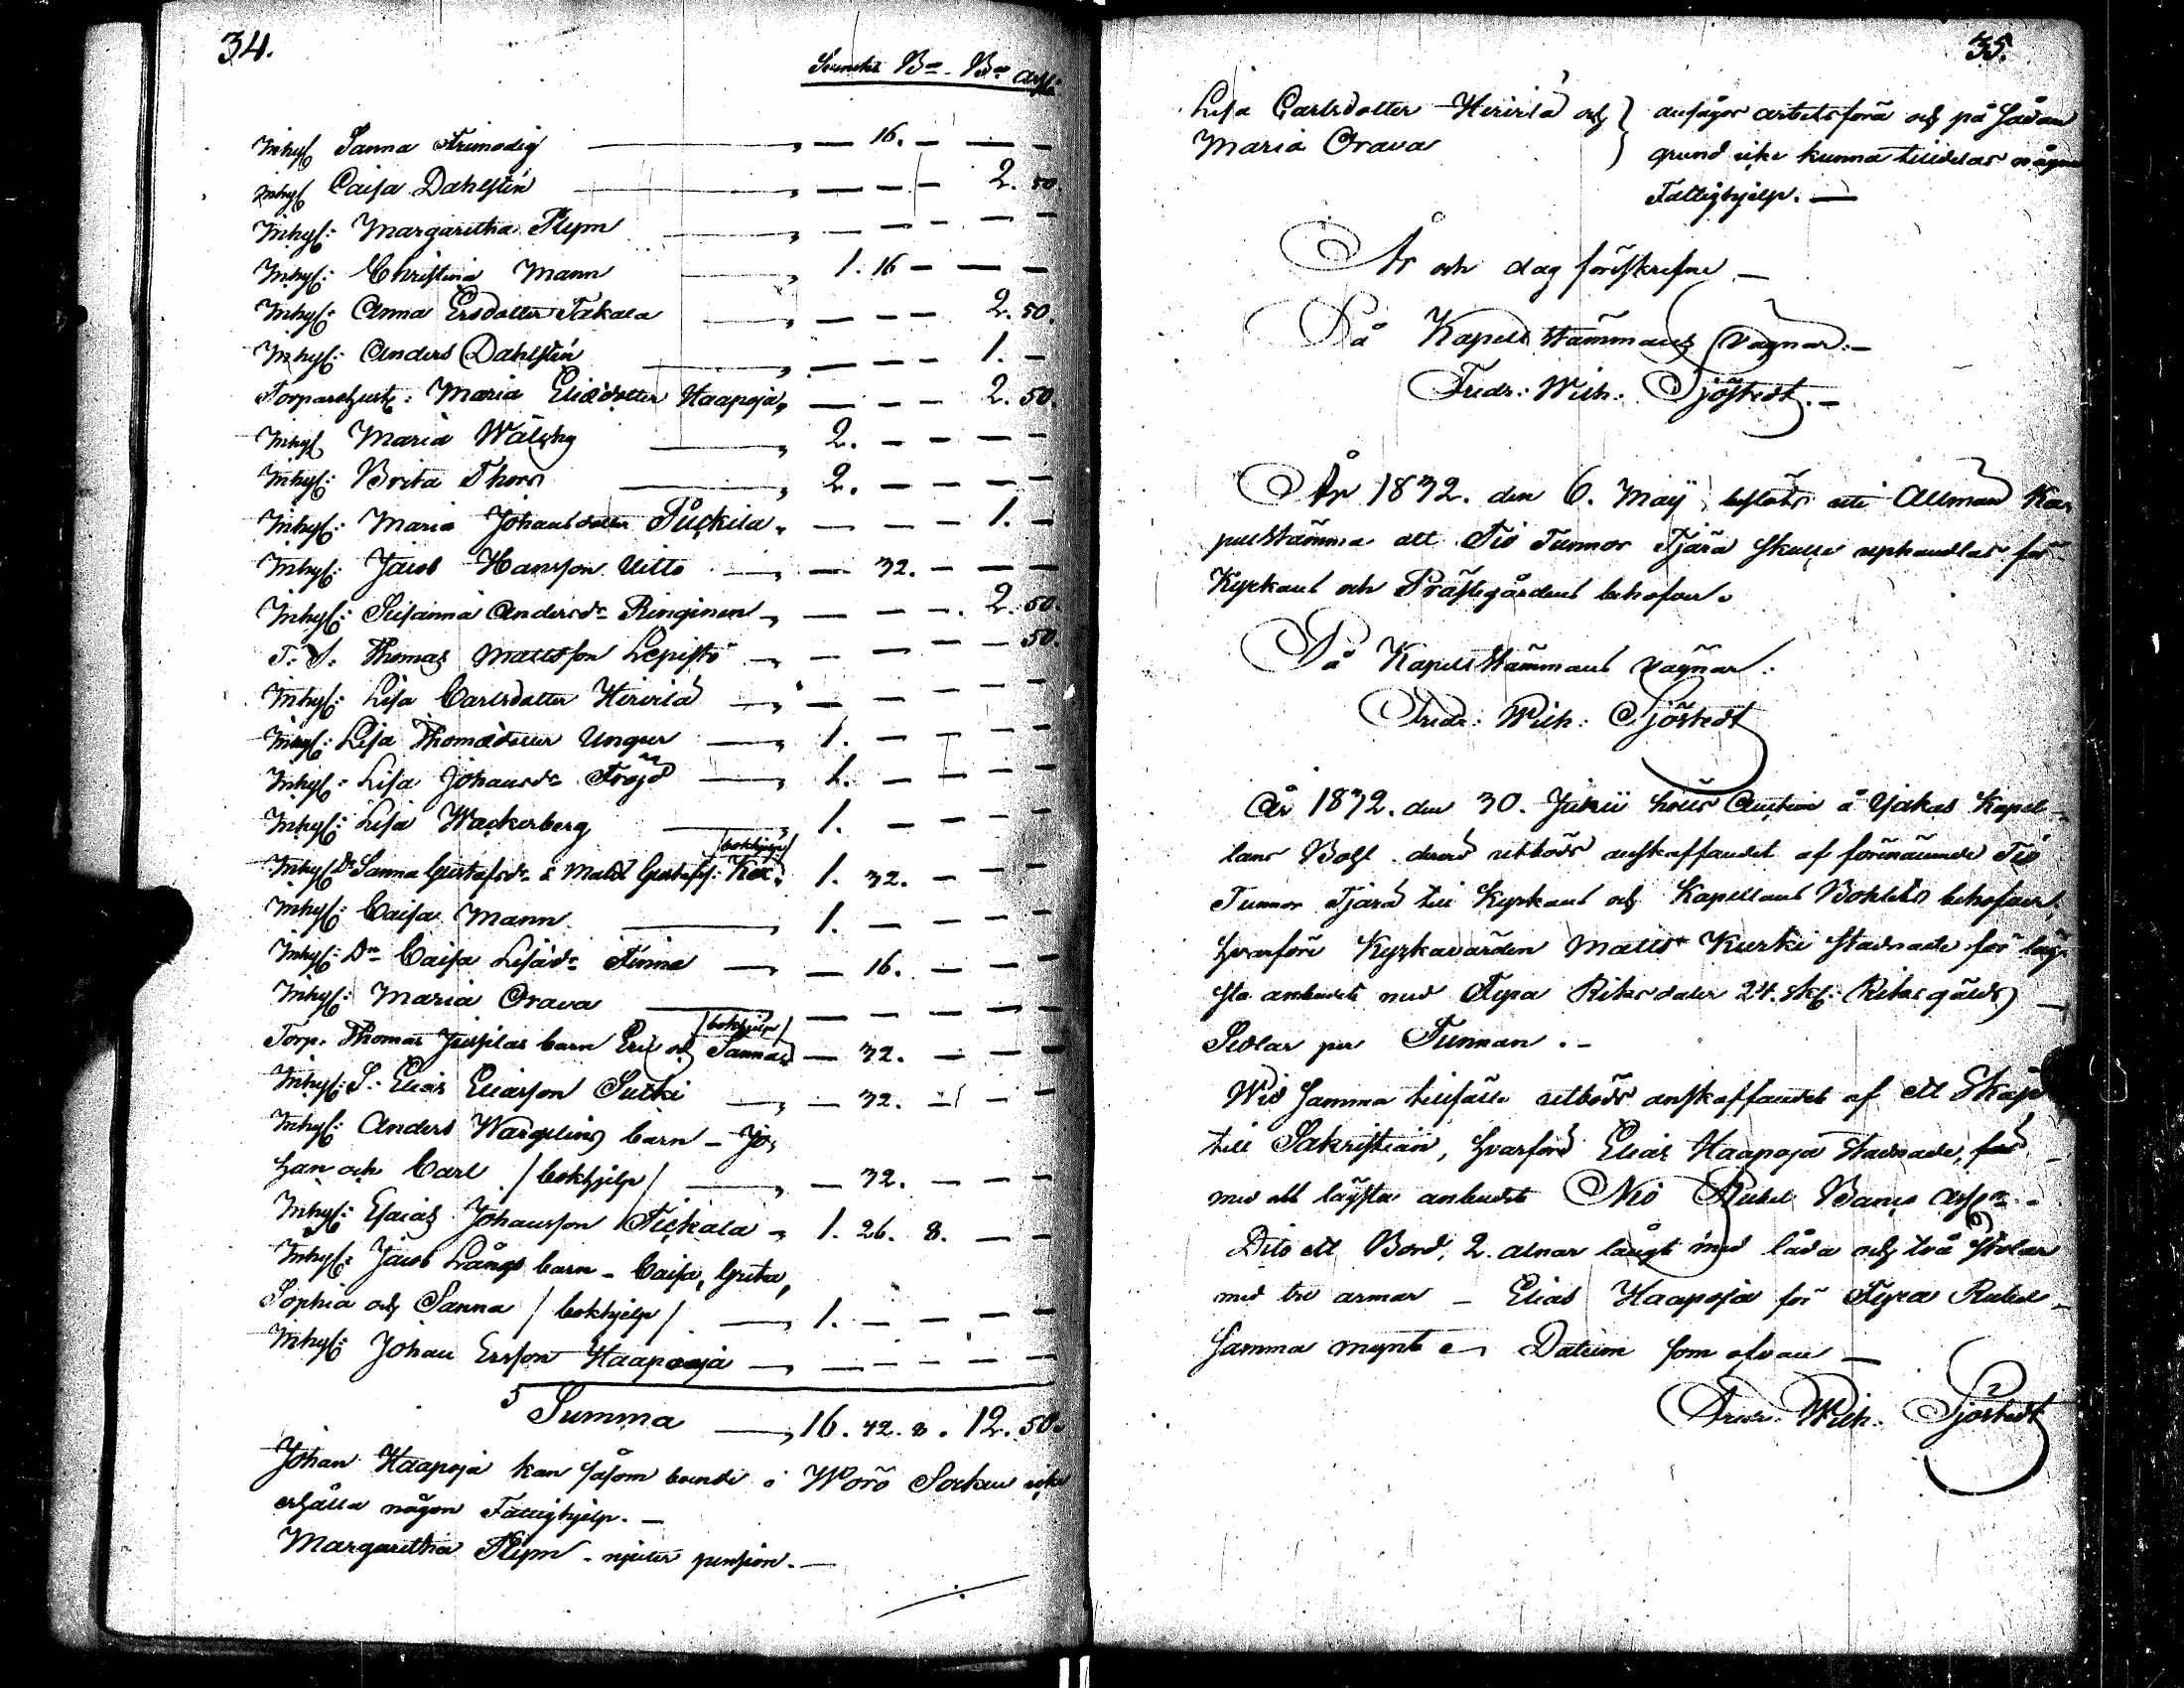 34.
Svenska Bco. Bco Ass.
Inhys: Sanna Frimodig — „ — 16. — — —
Inhys: Caisa Dahlstén — „ — — — 2. 50.
Inhys: Margaretha Flym — „ — — — — —
Inhys: Christina Mann — „ 1. 16 — — —
Inhys: Anna Ersdotter Takala — „ — — — 2. 50.
Inhys: Anders Dahlstén — „ — — — 1. —
Torparehust: Maria Eliædotter Haapoja „ — — — 2. 50.
Inhys: Maria Wälsby — „ 2. — — — —
Inhys: Brita Thors — „ 2. — — — —
Inhys: Maria Johansdotter „ — — — 1. —
Inhys: Jacob Hansson Uitto — „ — 32. — — —
Inhys: Susanna Andersdr Ringinen „ — — — 2. 50.
T: S. Thomas Mattsson Lepistö — „ — — — — 50.
Inhys: Lisa Carlsdotter Hirvelä — „ — — — — —
Inhys: Lisa Thomædotter Ungur — „ 1. — — — —
Inhys: Lisa Johansdr Fröjd — „ 1. — — — —
Inhys: Lisa Wackerberg — „ 1. — — — —
/bokhjelp/
Inhys Dr Sanna Gustafsdr & Gustafs: „ 1. 32. — — —
Inhys: Caisa Mann — „ 1. — — — —
Inhys: Dr Caisa Lisädr Finne — „ — 16. — — —
Inhys: Maria Orava — — — — — —
/bokhjelp/
Torp. Thomas Jussilas barn Eric och Sanna — 32. — — —
Inhys: S: Elias Eliasson Sutki — „ — 32. — — —
Inhys: Anders Wargelins barn – Jo-
han och Carl /bokhjelp/ — „ — 32. — — —
Inhys: Esaias Johansson Tickala „ 1. 26. 8. — —
Inhys: Jacob Långs barn – Caisa, Greta,
Sophia och Sanna /bokhjelp/ — „ 1. — — — —
Inhys: Johan Ersson Haapoja — „ — — — — —
Summa — „ 16. 42. 8. 12. 50.
Johan Haapoja kan såsom boende i Wörö Socken icke
erhålla någon Fattighjelp. —
Margaretha Flym – njuter pension. —
35.
Lisa Carlsdotter Hirvelä och } ansågos arbetsföra och på sådan
Maria Orava } grund icke kunna tilldelas någon
Fattighjelp. —
År och dag förreskrefne —
På Kapell stämmans vägnar. —
Fredr: Wilh: Sjöstedt. —
År 1832. den 6. Maij beslöts uti Allmän Ka-
pellstämma att Tio Tunnor Tjära skulle uphandlas för
Kyrkans och Prästegårdens behofver.
På Kapellstämmans vägnar:
Fredr: Wilh: Sjöstedt
År 1832. den 30. Junii hölls Auction å Ylihärmä Kapel-
lans Bohl derwid utböds anskaffandet af förenämnde Tio
Tunnor Tjära till Kyrkans och Kapellans Bohlets behofver,
hvarföre Kyrkovärden Matts Kurki stadnade för läg-
sta anbudet med Fyra Riksdaler 24. sk: Riksgälds
Sedlar per Tunnan. —
Wid samma tillfälle utböds anskaffandet af ett Skåp
till Sakristian, hvarföre Elias Haapoja stadnade, för
med alt lägsta anbudet Nio Rubel Banco Assgn. —
Dito ett Bord, 2. alnar långt med låda och två stolar
med tre armar – Elias Haapoja för Fyra Rubel
samma mynt — Datum som ofvan —
Fredr. Wilh. Sjöstedt